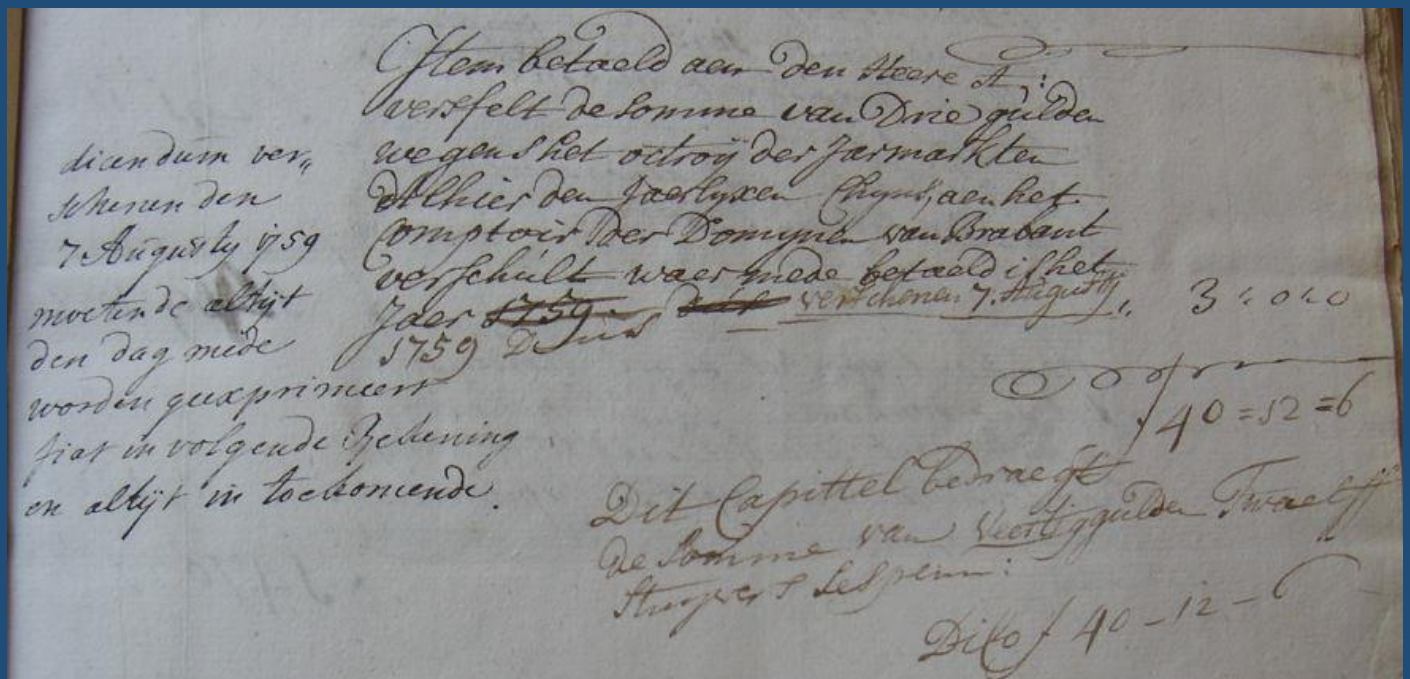 Item betaeld aen den Heere A:
versfelt de Somme van Drie gulden
wegens het octroij der Jarmarkten
Alhier den Jaerlyxen Chyns, aen het
Comptoir der Domijnen van Brabant
verschult waer mede betaeld is het
Jaer 1759. verschenen 7. Augustij
1759 Dus 3 " 0 " 0
dicendum ver„
schenen den
7 Augustij 1759
moetende altijt
den dag mede
worden geexprimeert
fiat in volgende Rekening
en altijt in toekomende.
ƒ 40 = 12 = 6
Dit Capittel bedraegt
de Somme van Veertig gulden Twaelff
Stuyvers Ses penn:
Dico ƒ 40 - 12 - 6